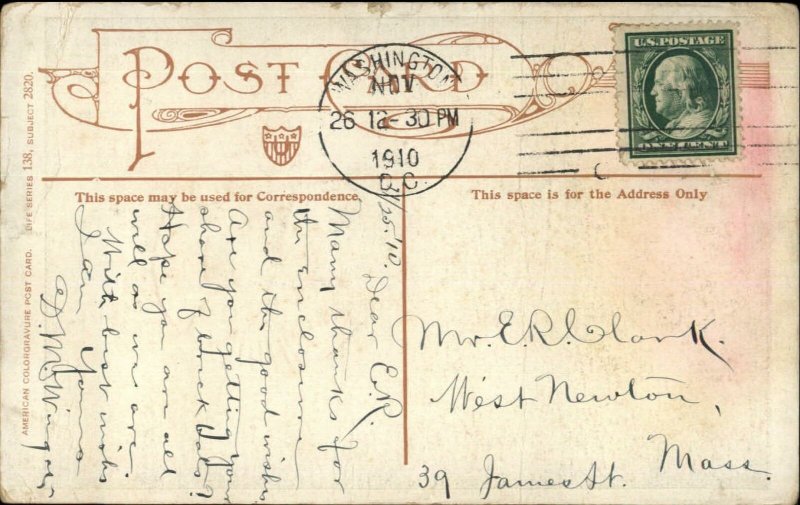 POST CARD
WASHINGTON
NOV
26 12-30 PM
1910
D.C.
U.S. POSTAGE
ONE CENT
This space may be used for Correspondence
This space is for the Address Only
AMERICAN COLORGRAVURE POST CARD. LIFE SERIES 138, SUBJECT 2820.
/25 '10. Dear E.R.
Many thanks for
the enclosure
and the good wishes
Are you getting your
share of
Hope you are all
well as we are
With best wishes
I am Yours
D. M.
Mr. E.R. Clark.
West Newton,
Mass.
39 James St.